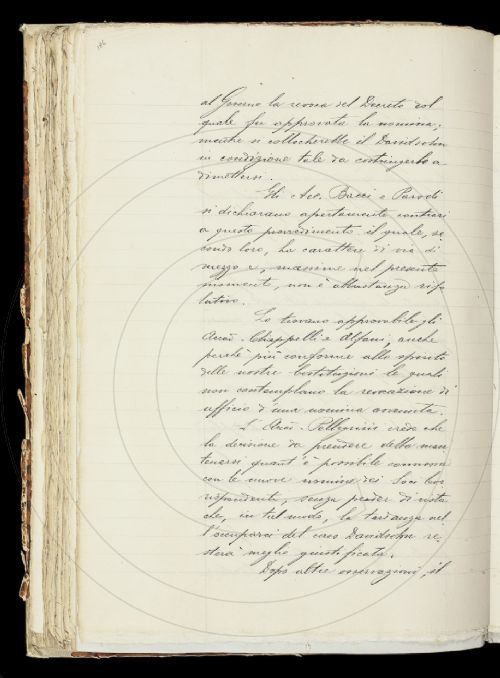 186
al Governo la revoca del Decreto col
quale fu approvata la nomina;
mentre si collocherebbe il Davidsohn
in condizione tale da costringerlo a
dimettersi.
Gli Acc. Bacci e Parodi
si dichiarano apertamente contrari
a questo provvedimento il quale, se
condo loro, ha carattere di via di
mezzo e, massime nel presente
momento, non è abbastanza riso
lutivo.
Lo trovano approvabile gli
Accad. Chiappelli e Alfani, anche
perchè più conforme allo spirito
delle nostre Costituzioni le quali
non contemplano la revocazione di
ufficio d'una nomina avvenuta.
L'Accad. Pellegrini crede che
la decisione da prendere debba man
tenersi quant'è possibile connessa
con le nuove nomine dei Soci Cor
rispondenti, senza perder di vista
che, in tal modo, la tardanza nel
l'occuparsi del caso Davidsohn re-
sterà meglio giustificata.
Dopo altre osservazioni, il